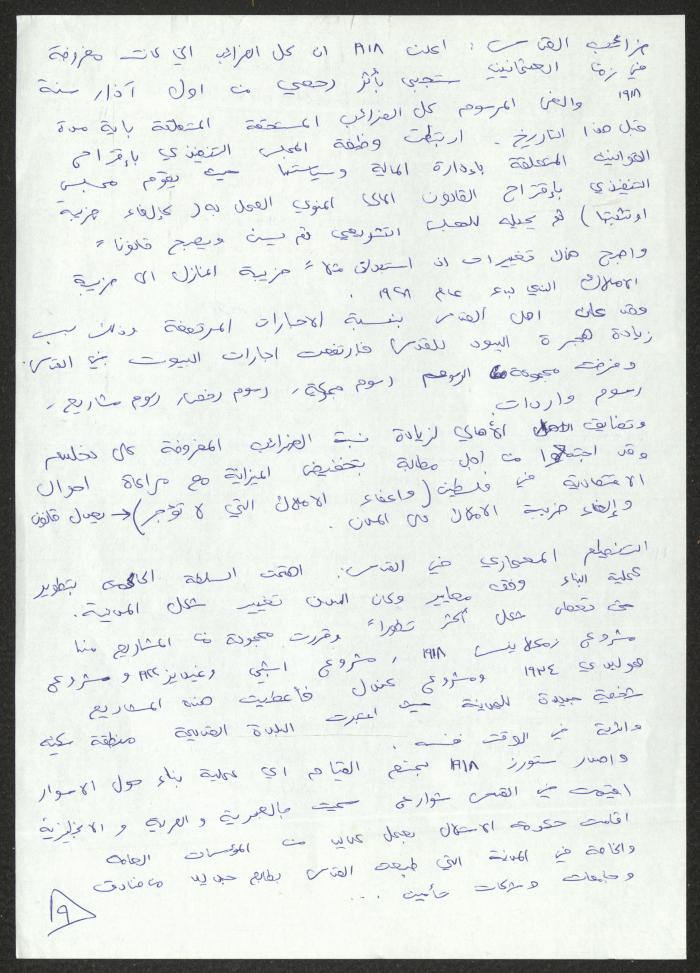 ضرائب القدس : اعلنت ١٩١٨ ان كل الضرائب التي كانت مفروضة
في زمن العثمانيين ستجبى بأثر رجعي من اول آذار سنة
١٩١٨ والغى المرسوم كل الضرائب المستحقة المتعلقة باية مدة
قبل هذا التاريخ . ارتبطت وظيفة المجلس التنفيذي بإقتراح
القوانين المتعلقة بإدارة المالية وسياستها حيث يقوم مجلس
التنفيذي بإقتراح القانون المالي المنوي العمل به ( كإلغاء ضريبة
او تثبيتها ) ثم يحيله للمجلس التشريعي ثم يسن ويصبح قانوناً
واصبح هناك تغييرات اذ استبدلت مثلاً ضريبة المنازل الى ضريبة
الاملاك التي بدء عام ١٩٢٨ .
وقد عانى اهل القدس بنسبة الاجارات المرتفعة وذلك بسبب
زيادة هجرة اليهود للقدس فارتفعت اجارات البيوت في القدس .
وفرضت مجموعة الرسوم رسوم جمركية، رسوم رخص، رسوم مشاريع،
رسوم واردات .
وتضايق الأهالي لزيادة نسبة الضرائب المفروضة على
وقد اجتمعوا من اجل مطالبة بتخفيض الميزانية مع مراعاة احوال
الاقتصادية في فلسطين (واعفاء الاملاك التي لا تؤجر) → بعدل قانون
وإلغاء ضريبة الاملاك في المدن .
التنظيم المعماري في القدس : اهتمت السلطة الحاكمة بتطوير
عملية البناء وفق معايير وكان الهدف تغيير شكل المدينة .
حتى تعطي شكل أكثر تطوراً وقررت مجموعة من المشاريع منها
مشروعي ١٩١٨ ، مشروعي اشبي وغيديز ١٩٢٢ و مشروعي
هوليدي ١٩٣٤ ومشروعي كندل فأعطيت هذه المشاريع
شخصية جديدة للمدينة حيث اعتبرت البلدة القديمة منطقة سكنية
واثرية في الوقت نفسه .
واصدر ستورز ١٩١٨ بمنع القيام اي عملية بناء حول الاسوار
اقيمت في القدس شوارعي سميت بالعبرية والعربية والانجليزية
اقامت حكومة الاحتلال بعمل من المؤسسات العامة
والخاصة في المدينة التي طبعت القدس بطابع جديد من فنادق
وجامعات وشركات تأمين ...
٩